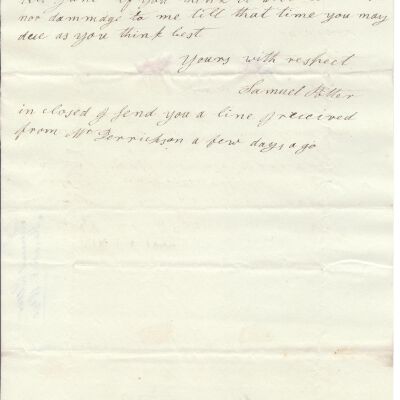 till June if you think it will be
nor dammage to me till that time you may
doe as you think best
Yours with respect
Samuel Potter
in closed I send you a line I received
from Mr Derrickson a few days ago